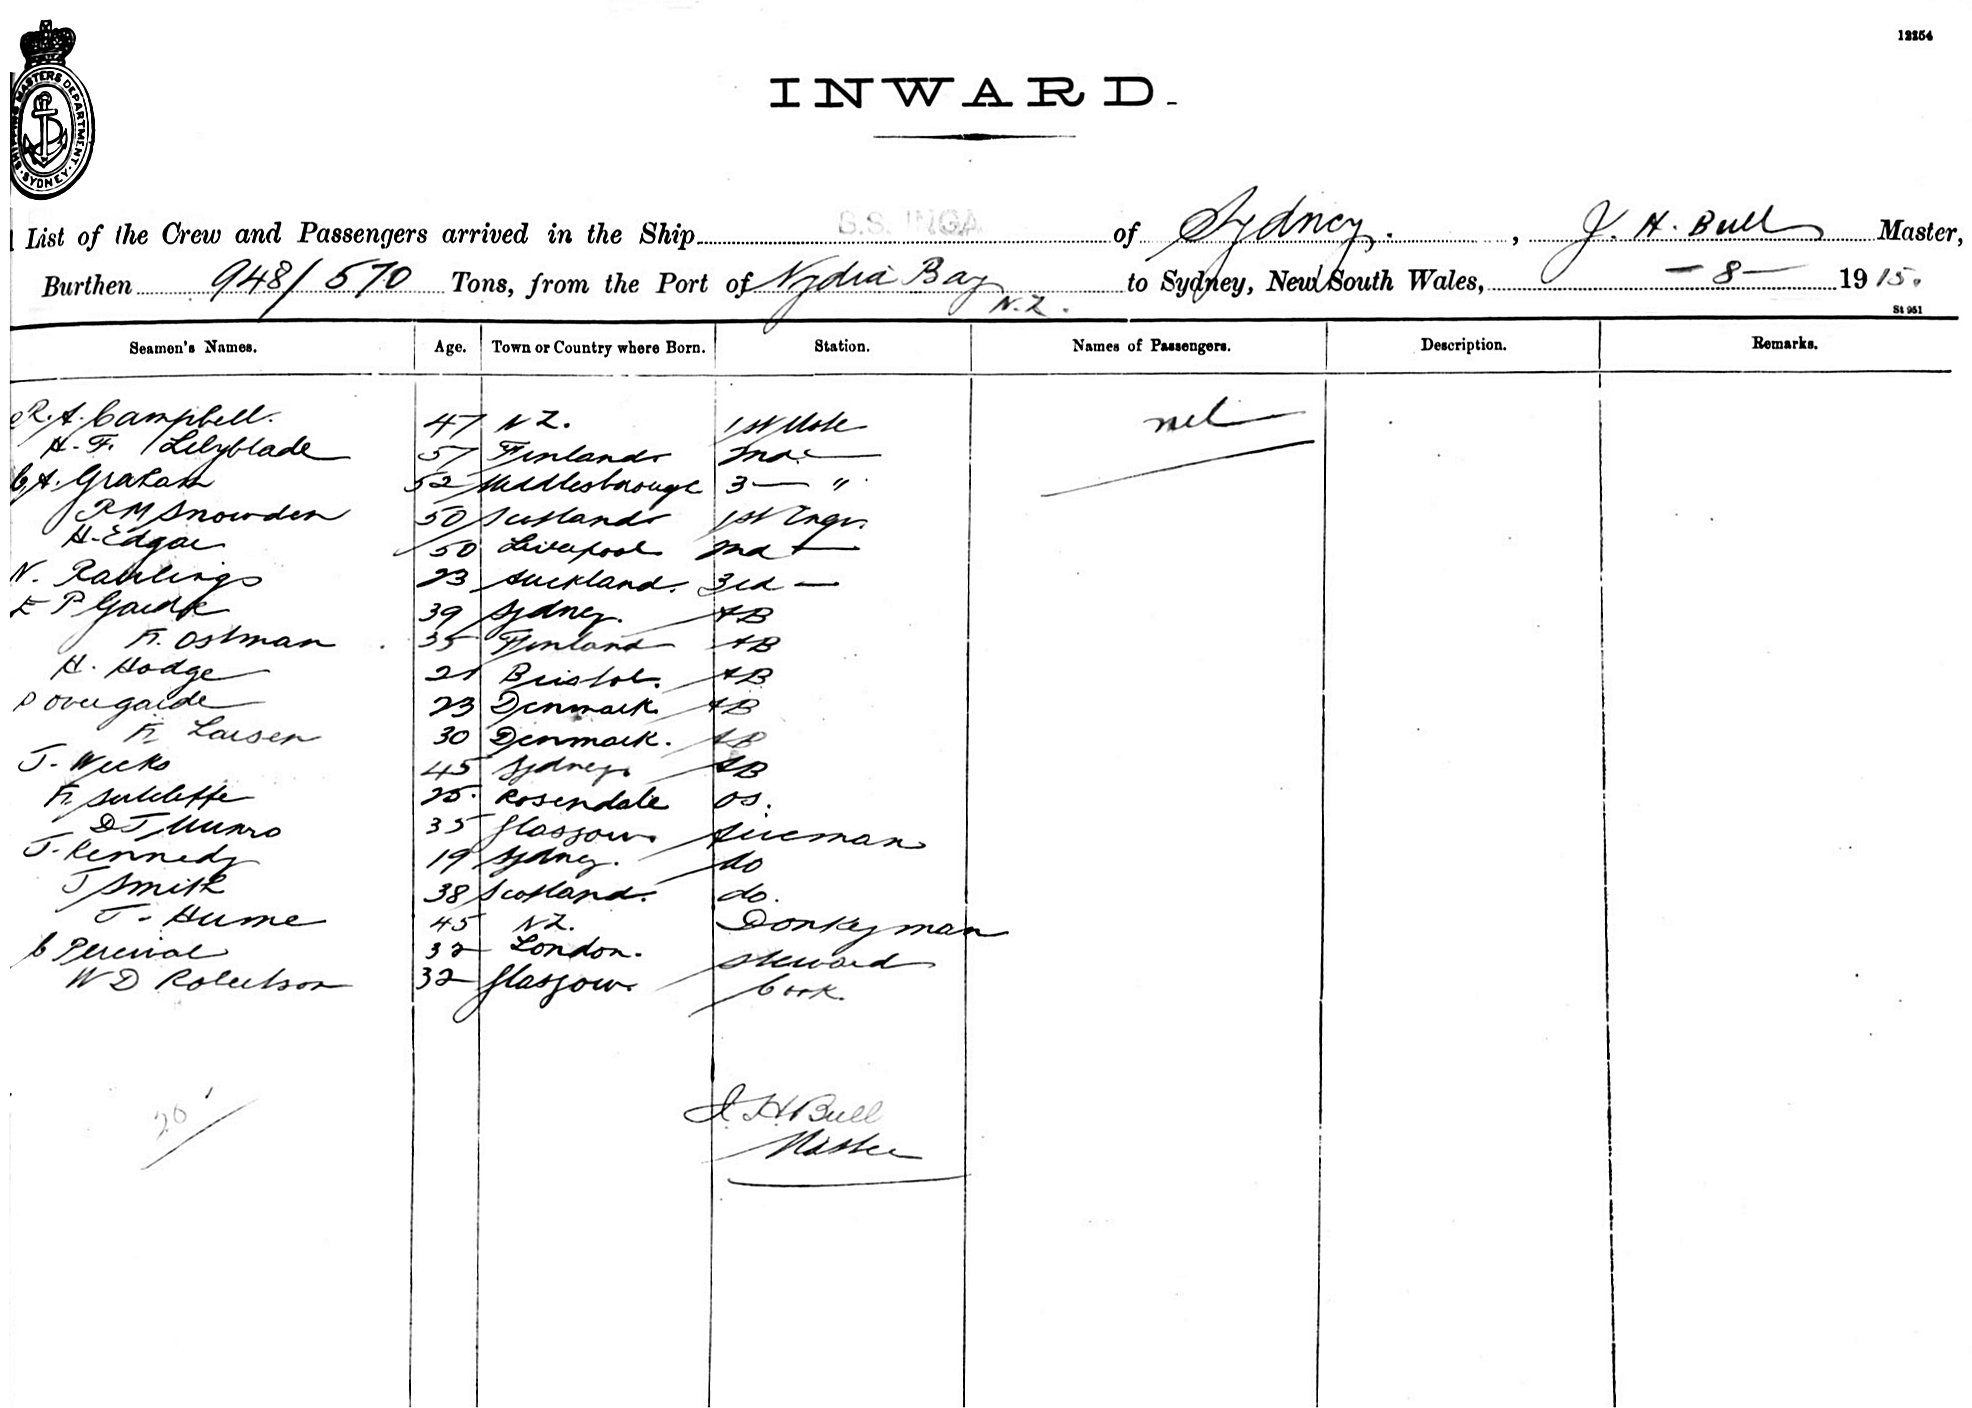 12254
SHIPPING MASTERS DEPARTMENT. SYDNEY.
INWARD.
List of the Crew and Passengers arrived in the Ship S.S. INGA of Sydney, J. H. Bull Master,
Burthen 948/570 Tons, from the Port of Nydia Bay N.Z. to Sydney, New South Wales, -8- 1915.
St 951
Seamen's Names. Age. Town or Country where Born. Station. Names of Passengers. Description. Remarks.
R. A. Campbell. 47 NZ. 1st Mate nil
H. F. Lilyblade 57 Finland 2nd —
C. A. Graham 52 Middlesborough 3 — "
R M Snowden 50 Scotland 1st Engr.
H. Edgar 50 Liverpool 2nd —
N. Rawlings 23 Auckland. 3rd —
E P Gaudk 39 Sydney. AB
F. Ostman 35 Finland AB
H. Hodge 21 Bristol. AB
P Overgaarde 23 Denmark AB
F. Larsen 30 Denmark. AB
J. Weeks 45 Sydney. AB
F. Sutcliffe 25. Rosendale OS.
D J Munro 35 Glasgow. Fireman
J. Kennedy 19 Sydney. do
J Smith 38 Scotland. do.
J. Hume 45 NZ. Donkeyman
C Percival 32 London. Steward
W D Robertson 32 Glasgow. Cook.
20
J. H. Bull
Master